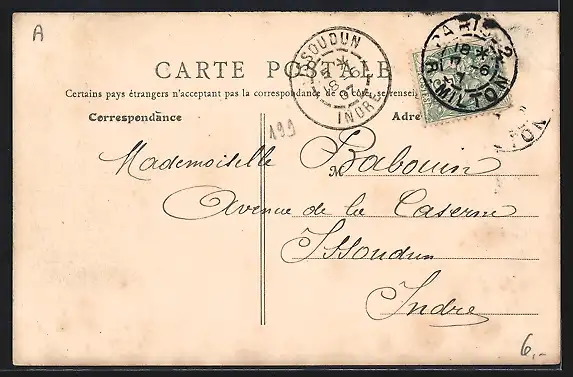 A
CARTE POSTALE
Certains pays étrangers n'acceptent pas la correspondance de ce côté, se rensei
Correspondance
Adre
199
ISSOUDUN
INDRE
PARIS
R. MILTON
Mademoiselle Babouin
M
Avenue de la Caserne
Issoudun
Indre
6,-